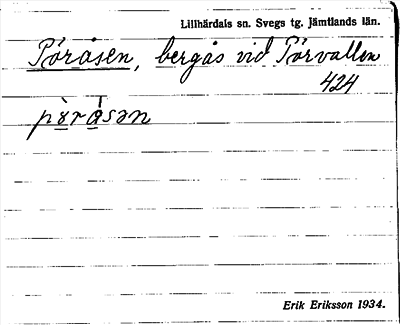 Lillhärdals sn. Svegs tg. Jämtlands län.
Pöråsen, bergås vid Pörvallen
424
Erik Eriksson 1934.